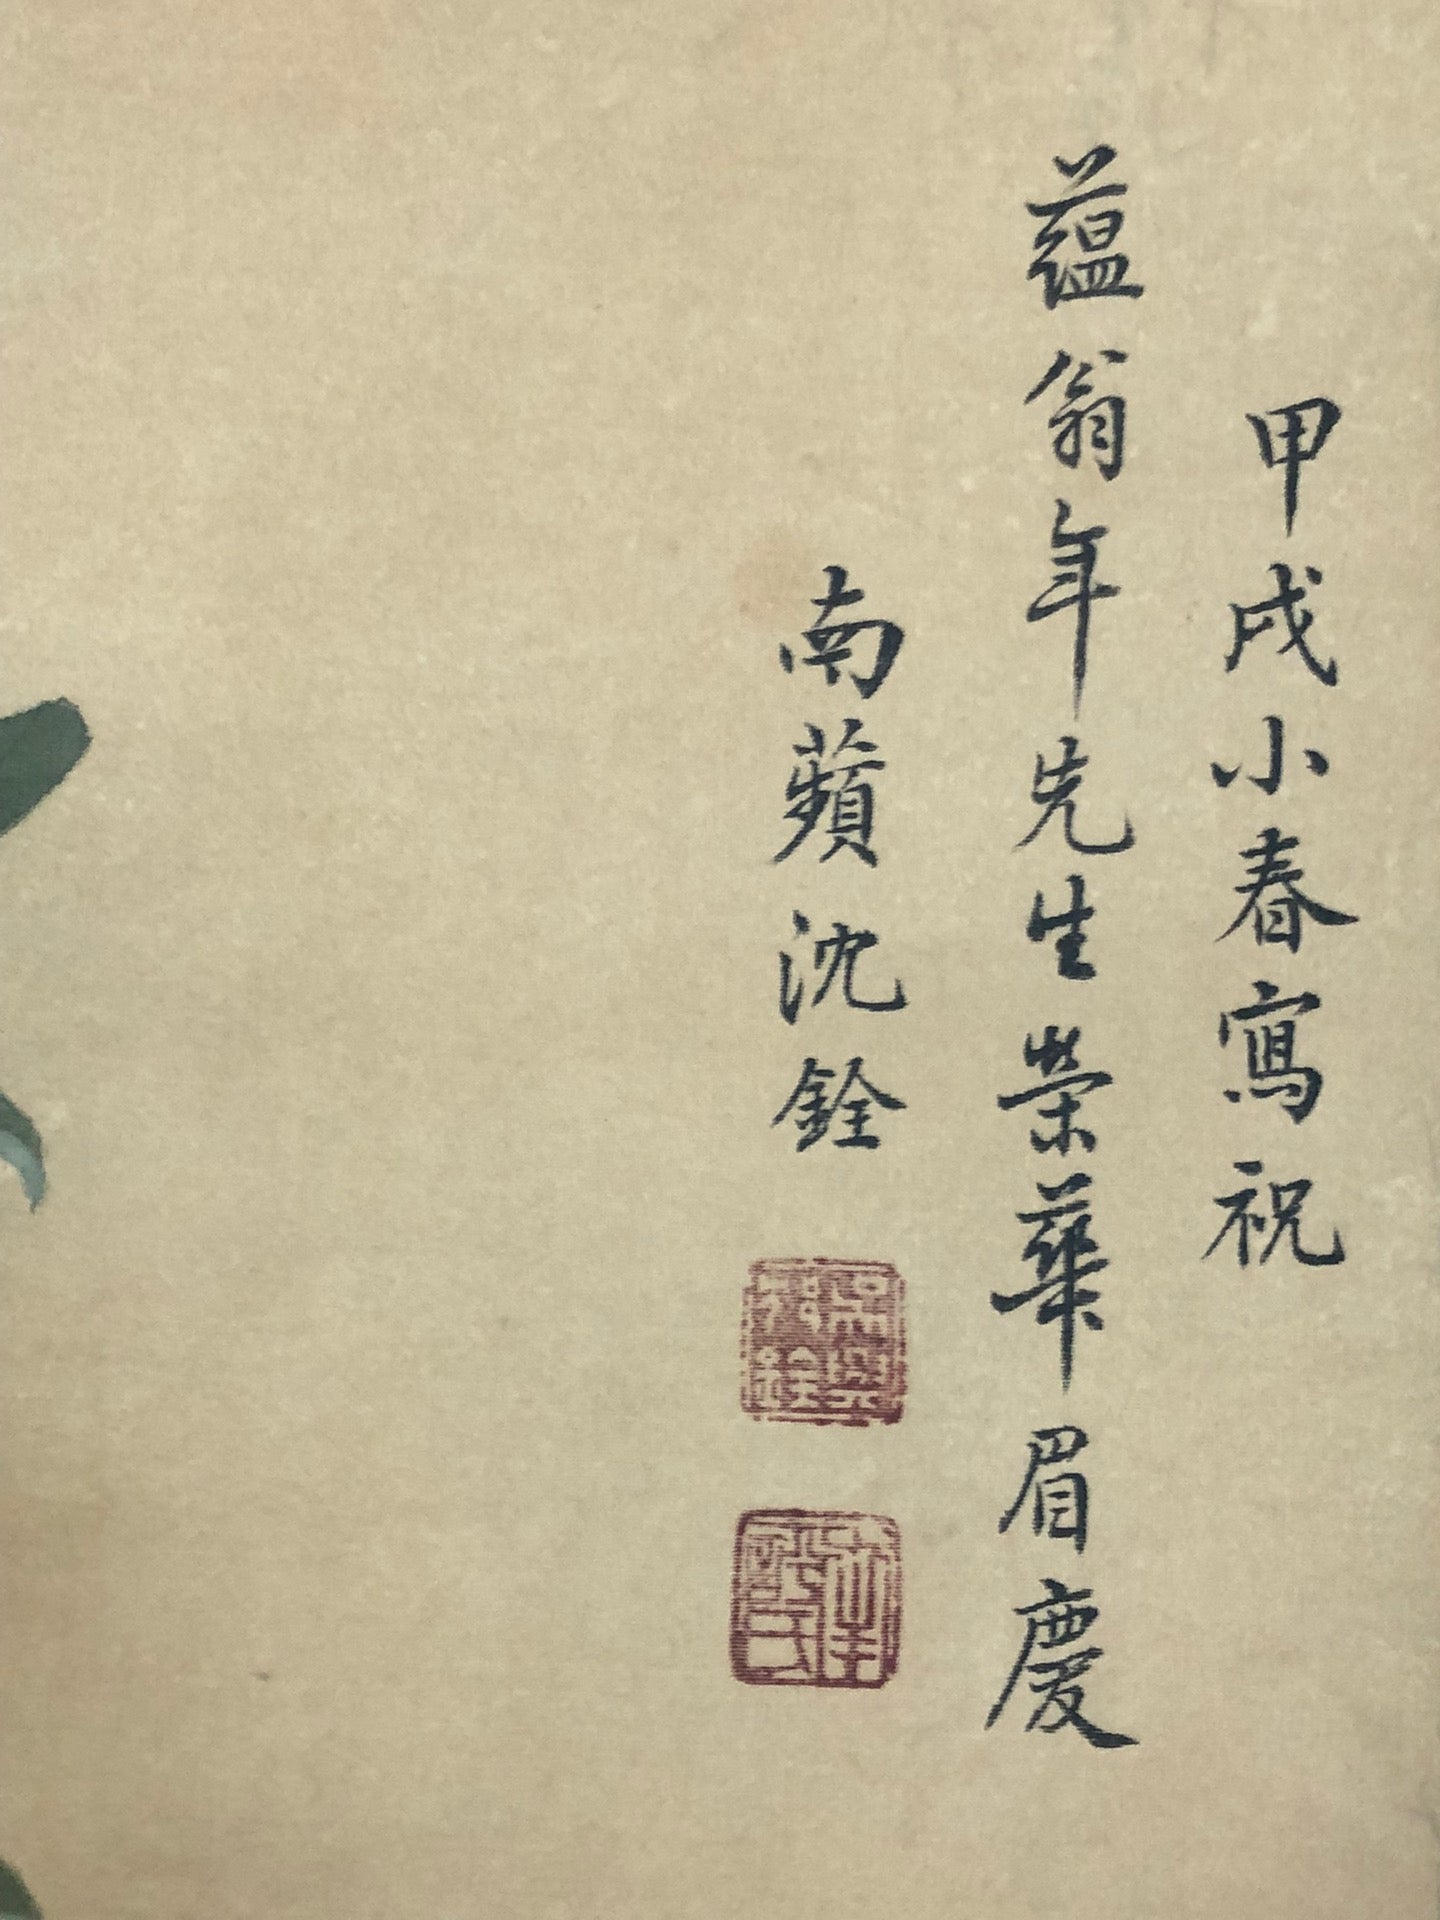 甲戌小春寫祝
蘊翁年先生榮華眉慶
南蘋沈銓